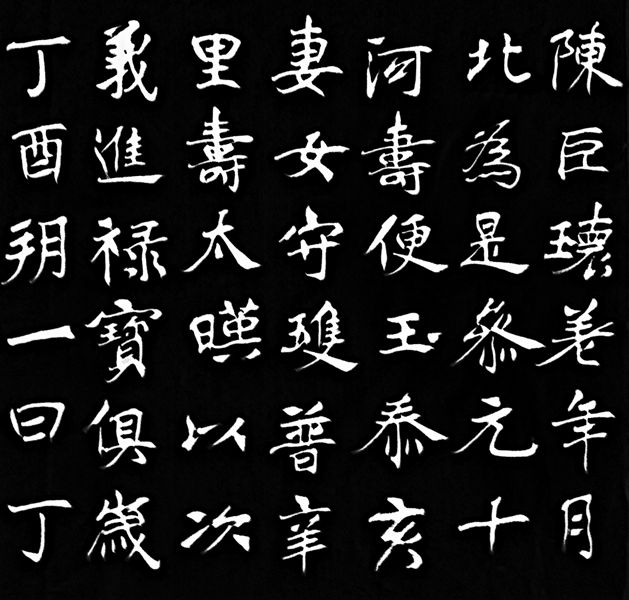 陳巨瓌年月
北為是參元十
河壽便玉恭亥
妻女守普辛
里壽太暎以次
義進禄寶俱歲
丁酉朔一日丁